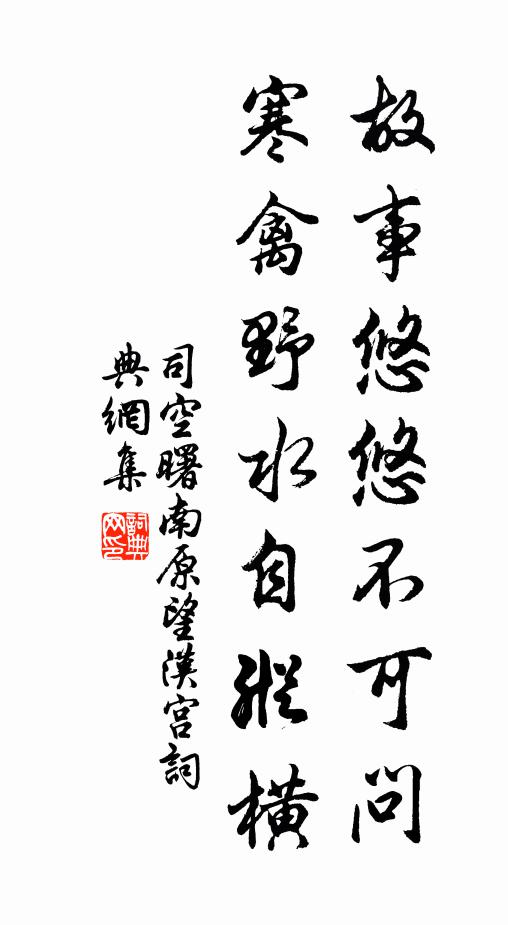 故事悠悠不可問
寒禽野水自縱橫
司空曙南原望漢宮詞
典網集
詞典網印